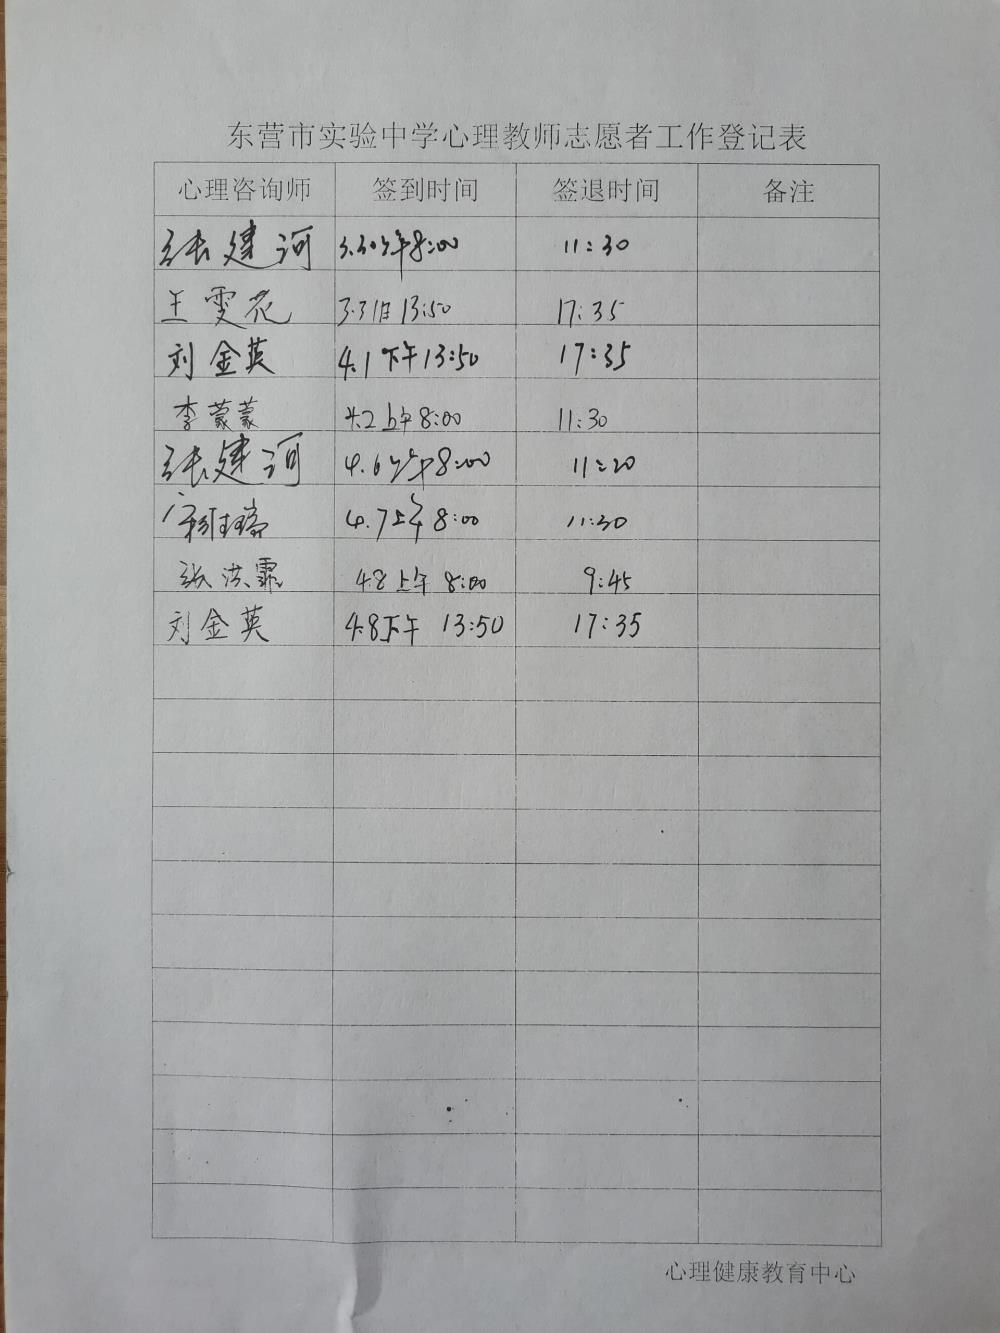 东营市实验中学心理教师志愿者工作登记表
心理咨询师 签到时间 签退时间 备注
张建河 3.30上午8:00 11:30
王雯花 3.31日 13:50 17:35
刘金英 4.1下午13:50 17:35
李蒙蒙 4.2上午8:00 11:30
张建河 4.6上午8:00 11:20
4.7上午8:00 11:30
张洪霏 4.8上午 8:00 9:45
刘金英 4.8下午 13:50 17:35
心理健康教育中心